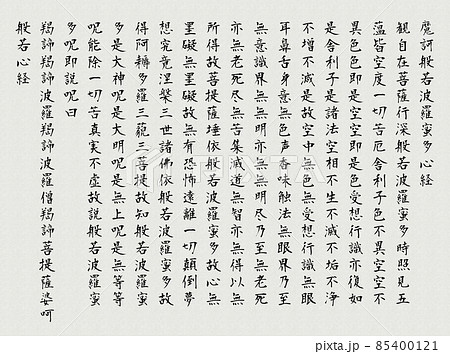 魔訶般若波羅蜜多心経
観自在菩薩行深般若波羅蜜多時照見五
蘊皆空度一切苦厄舎利子色不異空空不
異色色即是空空即是色受想行識亦復如
是舎利子是諸法空相不生不滅不垢不浄
不増不減是故空中無色無受想行識無眼
耳鼻舌身意無色声香味触法無眼界乃至
無意識界無無明亦無無明尽乃至無老死
亦無老死尽無苦集滅道無智亦無得以無
所得故菩提薩埵依般若波羅蜜多故心無
罣礙無罣礙故無有恐怖遠離一切顛倒夢
想究竟涅槃三世諸佛依般若波羅蜜多故
得阿耨多羅三藐三菩提故知般若波羅蜜
多是大神呪是大明呪是無上呪是無等等
呪能除一切苦真実不虚故説般若波羅蜜
多呪即説呪曰
羯諦羯諦波羅羯諦波羅僧羯諦菩提薩婆呵
般若心経
PIXTA
pixta.jp - 85400121